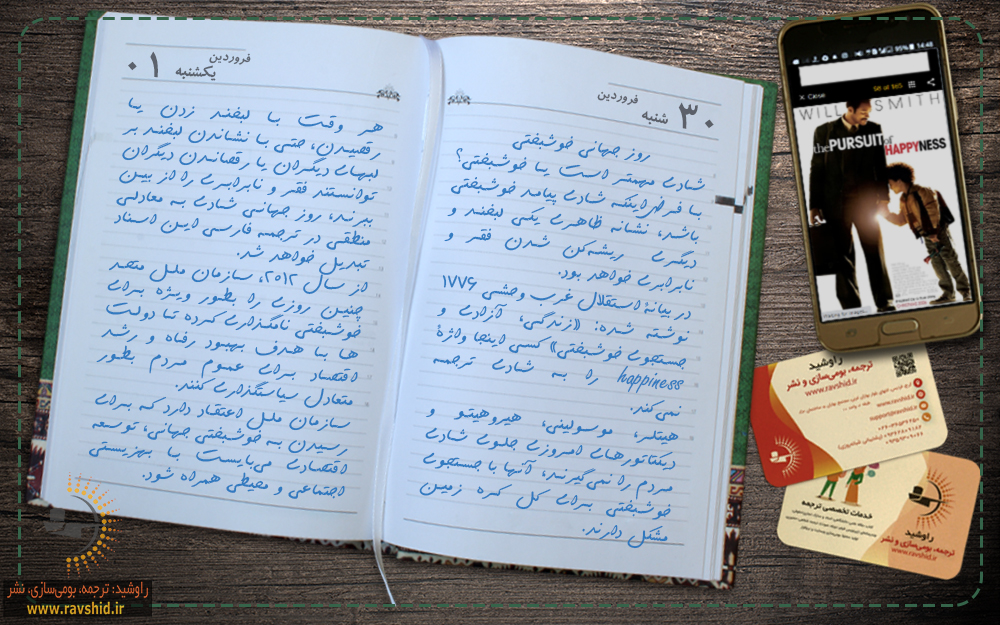 فروردین
شنبه ۳۰
روز جهانی خوشبختی
شادی مهمتر است یا خوشبختی؟
با فرض اینکه شادی پیامد خوشبختی
باشد، نشانه ظاهری یکی لبخند و
دیگری ریشه‌کن شدن فقر و
نابرابری خواهد بود.
در بیانهٔ استقلال غرب وحشی ۱۷۷۶
نوشته شده: «زندگی، آزادی و
جستجوی خوشبختی» کسی اینجا واژهٔ
happiness را به شادی ترجمه
نمی‌کند.
هیتلر، موسولینی، هیروهیتو و
دیکتاتورهای امروزی جلوی شادی
مردم را نمی‌گیرند، آنها با جستجوی
خوشبختی برای کل کره زمین
مشکل دارند.
فروردین
یکشنبه ۰۱
هر وقت با لبخند زدن یا
رقصیدن، حتی با نشاندن لبخند بر
لبهای دیگران یا رقصاندن دیگران
توانستند فقر و نابرابری را از بین
ببرند، روز جهانی شادی به معادلی
منطقی در ترجمه فارسی این اسناد
تبدیل خواهد شد.
از سال ۲۰۱۲، سازمان ملل متحد
چنین روزی را بطور ویژه برای
خوشبختی نامگذاری کرده تا دولت
ها با هدف بهبود رفاه و رشد
اقتصاد برای عموم مردم بطور
متعادل سیاستگذاری کنند.
سازمان ملل اعتقاد دارد که برای
رسیدن به خوشبختی جهانی، توسعه
اقتصادی می‌بایست با بهزیستی
اجتماعی و محیطی همراه شود.
95% 14:48
50 of 165
WILL SMITH
the PURSUIT of HAPPYNESS
راوشید
ترجمه، بومی‌سازی و نشر
www.ravshid.ir
www.ravshid.ir
support@ravshid.ir
خدمات تخصصی ترجمه
راوشید
ترجمه، بومی‌سازی و نشر
www.ravshid.ir
راوشید: ترجمه، بومی‌سازی، نشر
www.ravshid.ir